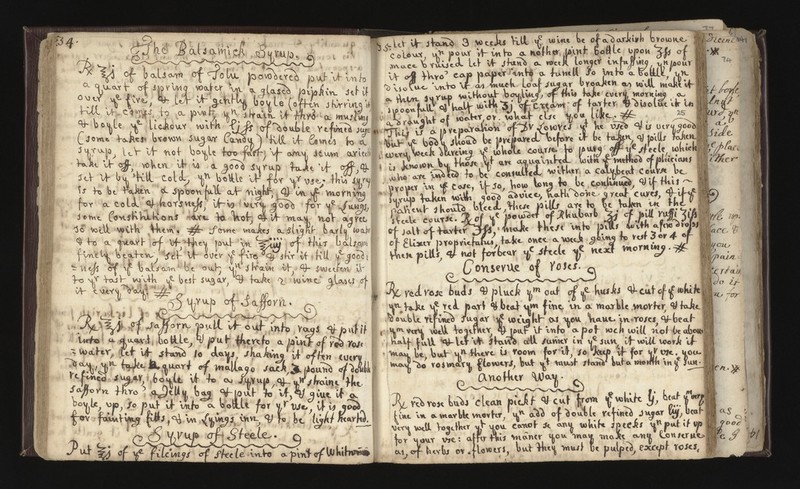 34.
The Balsamick Syrup.
℞ ℥ of balsam of Tolu powdered put it into
a quart of spring water in a glased pipkin set it
over yᵉ fire, & let it gently boyle (often stirring it
till it comes to a pint, yⁿ strain it thro a muslin
& boyle yᵉ lickour with of double refined sugar
(some takes brown sugar Candy) till it comes to a
syrup, let it not boyle too fast, if any scum arise
take it off, when it is a good syrup take it off, &
set it by till cold, yⁿ botle it for yʳ use. this syrup
is to be taken a spoonfull at night, & in yᵉ morning
for a cold & horsness, it is very good for yᵉ Lungs,
some Constitutions are to hot, & it may not agree
so well with them. # some makes a slight barly water
& to a quart of yᵗ they put in of this balsam
finely beaten, set it over yᵉ fire & stir it till yᵉ good=
=ness of yᵉ balsam be out, yⁿ strain it, & sweeten it
to yʳ tast with yᵉ best sugar, & take 2 wine glases of
it every day #
Syrup of Safforn.
℞ of safforn pull it out into rags & put it
into a quart botle, & put thereto a pint of red rose
water, let it stand 10 days, shaking it often every
day, yⁿ take quart of mallago sack, pound of double
refined sugar, boyle it to a syrup & yⁿ straine the
saffron thro' a Jelly bag & put to it, & give it a
boyle up, so put it into a botle for yʳ use, it is good
for fainting fitts, & in Lyings inn, & to be light hearted.
Syrup of Steele.
Put of yᵉ fileings of steele into a pint of Whitwine
35. let it stand 3 weeks till yᵉ wine be of a darkish browne
colour, yⁿ pour it into a nother pint botle upon ℥ss of
mace bruised let it stand a week longer infusing yⁿ pour
it off thro' cap paper into a tunell so into a botle, yⁿ
disolve into it as much loaf sugar broaken as will make it
a thin syrup without boyling. of this take every morning a
spoonfull & half with of cream of tarter & disolve it in
a draught of water or what else you like. #
25
This is a preparation of Dr Lowers yᵗ he used & is very good
but yᵉ body shoud be prepared before it be taken, & pills taken
every week dureing yᵉ whole course to purg off yᵉ steele which
is known by those yᵗ are aquainted with yᵉ method of phisicians
who are indeed to be consulted wither a calybeat course be
proper in yᵉ case, if so, how long to be continued, & if this
syrup taken with good advice, hath done great cures, & if yᵉ
patient should bleed, these pills are to be taken in the
steele course. ℞ of yᵉ powder of Rhubarb of pill ruffi
of salt of tarter make these into pills with a few drops
of Elixer proprietatus, take once a week going to rest 3 or 4 of
then pills, & not forbear yᵉ steele yᵉ next morning. #
Conserue of roses.
℞ red rose buds & pluck yᵐ out of yᵉ husks & cut of yᵉ white
yⁿ take yᵉ red part & beat yᵐ fine in a marble morter, & take
double refined sugar yᵉ weight as you haue in roses, & beat
yᵐ very well together, & put it into a pot wch will not be aboue
half full & let it stand all sumer in yᵉ sun, it will work it
may be, but yⁿ there is room for it, so keep it for yʳ use, you
may do rosmary flowers, but yᵗ must stand but a month in yᵉ sun
Another Way.
℞ red rose buds clean pickt & cut from yᵉ white beat yᵐ very
fine in a marble morter, yⁿ add of double refined sugar beat
very well together yᵗ you canot se any white specks yⁿ put it up
for your use: after this maner you may make any Conserue
as, of herbs or flowers, but they must be pulped, except roses,